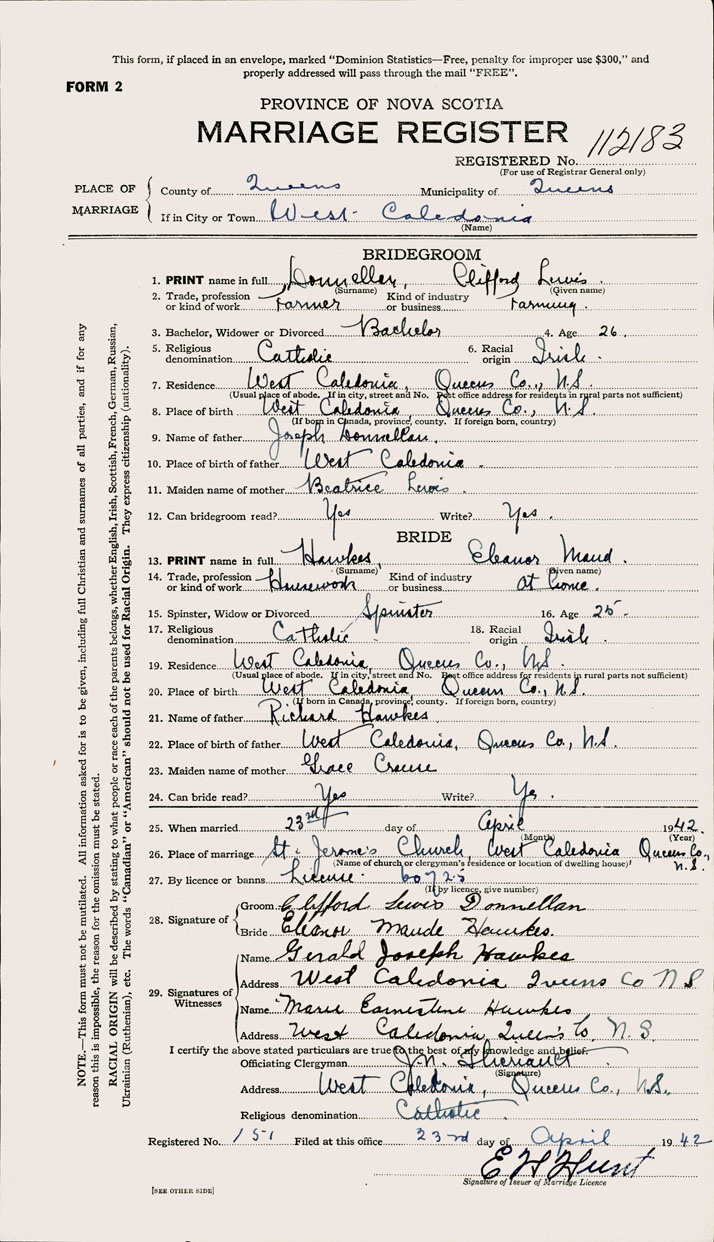 This form, if placed in an envelope, marked "Dominion Statistics—Free, penalty for improper use $300," and
properly addressed will pass through the mail "FREE".
FORM 2
PROVINCE OF NOVA SCOTIA
MARRIAGE REGISTER
REGISTERED No. 112183
(For use of Registrar General only)
PLACE OF MARRIAGE
County of Queens Municipality of Queens
If in City or Town West Caledonia
(Name)
BRIDEGROOM
1. PRINT name in full Donnellan, Clifford Lewis.
(Surname) (Given name)
2. Trade, profession or kind of work Farmer Kind of industry or business Farming.
3. Bachelor, Widower or Divorced Bachelor 4. Age 26.
5. Religious denomination Catholic 6. Racial origin Irish.
7. Residence West Caledonia, Queens Co., N.S.
(Usual place of abode. If in city, street and No. Post office address for residents in rural parts not sufficient)
8. Place of birth West Caledonia, Queens Co., N.S.
(If born in Canada, province, county. If foreign born, country)
9. Name of father Joseph Donnellan.
10. Place of birth of father West Caledonia.
11. Maiden name of mother Beatrice Lewis.
12. Can bridegroom read? Yes Write? Yes.
BRIDE
13. PRINT name in full Hawkes, Eleanor Maud.
(Surname) (Given name)
14. Trade, profession or kind of work Housework Kind of industry or business at home.
15. Spinster, Widow or Divorced Spinster 16. Age 25.
17. Religious denomination Catholic 18. Racial origin Irish.
19. Residence West Caledonia, Queens Co., N.S.
(Usual place of abode. If in city, street and No. Post office address for residents in rural parts not sufficient)
20. Place of birth West Caledonia, Queens Co., N.S.
(If born in Canada, province, county. If foreign born, country)
21. Name of father Richard Hawkes
22. Place of birth of father West Caledonia, Queens Co., N.S.
23. Maiden name of mother Grace Crouse
24. Can bride read? Yes Write? Yes.
25. When married 23rd day of April 1942.
(Month) (Year)
26. Place of marriage St. Jerome's Church, West Caledonia Queens Co., N.S.
(Name of church or clergyman's residence or location of dwelling house)
27. By licence or banns License. 60725
(If by licence, give number)
28. Signature of
Groom Clifford Lewis Donnellan
Bride Eleanor Maude Hawkes.
29. Signatures of Witnesses
Name Gerald Joseph Hawkes
Address West Caledonia Queens Co N S
Name Marie Earnestine Hawkes
Address West Caledonia, Queen's Co. N. S.
I certify the above stated particulars are true to the best of my knowledge and belief.
Officiating Clergyman J.N. Theriault
(Signature)
Address West Caledonia, Queens Co., N.S.
Religious denomination Catholic.
Registered No. 151 Filed at this office 23rd day of April 1942
E H Hunt
Signature of Issuer of Marriage Licence
[SEE OTHER SIDE]
NOTE.—This form must not be mutilated. All information asked for is to be given, including full Christian and surnames of all parties, and if for any
reason this is impossible, the reason for the omission must be stated.
RACIAL ORIGIN will be described by stating to what people or race each of the parents belongs, whether English, Irish, Scottish, French, German, Russian,
Ukrainian (Ruthenian), etc. The words "Canadian" or "American" should not be used for Racial Origin. They express citizenship (nationality).